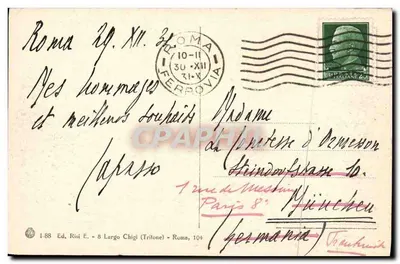 Roma 29. XII. 32
Mes hommages
et meilleurs souhaits
Capasso
ROMA
FERROVIA
10-11
30·XII
31·X
Madame
La Comtesse d'Ormesson
Steindorfstrasse 10.
München
(Germania)
1 rue de Messine
Paris 8e
CPAPHIL
1-88 Ed. Bixi E. - 8 Largo Chigi (Tritone) - Roma, 104